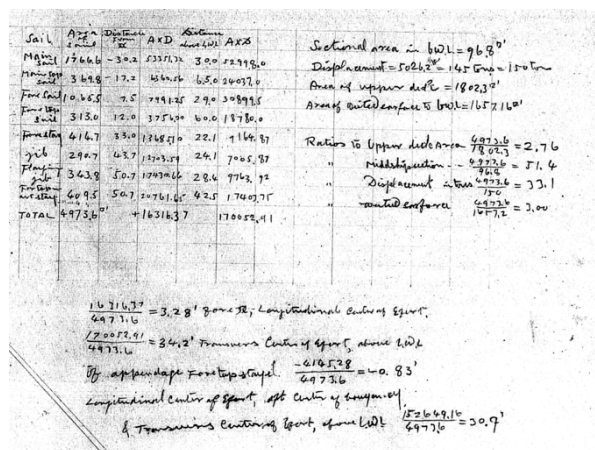 Sail Area of Sail Distance from AXD Distance above LWL AXD
Main Sail 1766.6 -30.2 53351.32 30.0 52998.0
Main top Sail 369.8 -17.2 6360.56 65.0 24037.0
Fore Sail 1065.5 7.5 7991.25 29.0 30899.5
Fore top Sail 313.0 12.0 3756.00 60.0 18780.0
Forestay 414.7 33.0 13685.10 22.1 9164.87
Jib 290.7 43.7 12703.59 24.1 7005.87
Flying jib 343.8 50.7 17430.66 28.4 9763.92
409.5 50.7 20761.65 42.5 17403.75
TOTAL 4973.6 +16316.37 170052.91
Sectional area in LWL = 96.8
Displacement = 5026.2 = 145 tons = 150 ton
Area of upper deck = 1802.3
Area of wetted surface to LWL = 1657.16
Ratios to Upper deck Area 4973.6/1802.3 = 2.76
" Middship section -- 4973.6/96.8 = 51.4
" Displacement in tons 4973.6/150 = 33.1
" wetted surface 4973.6/1657.2 = 3.00
16316.37/4973.6 = 3.28' Longitudinal Center of Effort,
170052.91/4973.6 = 34.2' Transvers Center of Effort, above LWL
If appendage Foretopstays'l -4145.28/4973.6 = -0.83'
Longitudinal Center of Effort, aft Center of bouyancy
& Transvers Center of Effort, above LWL 152649.16/4973.6 = 30.7'